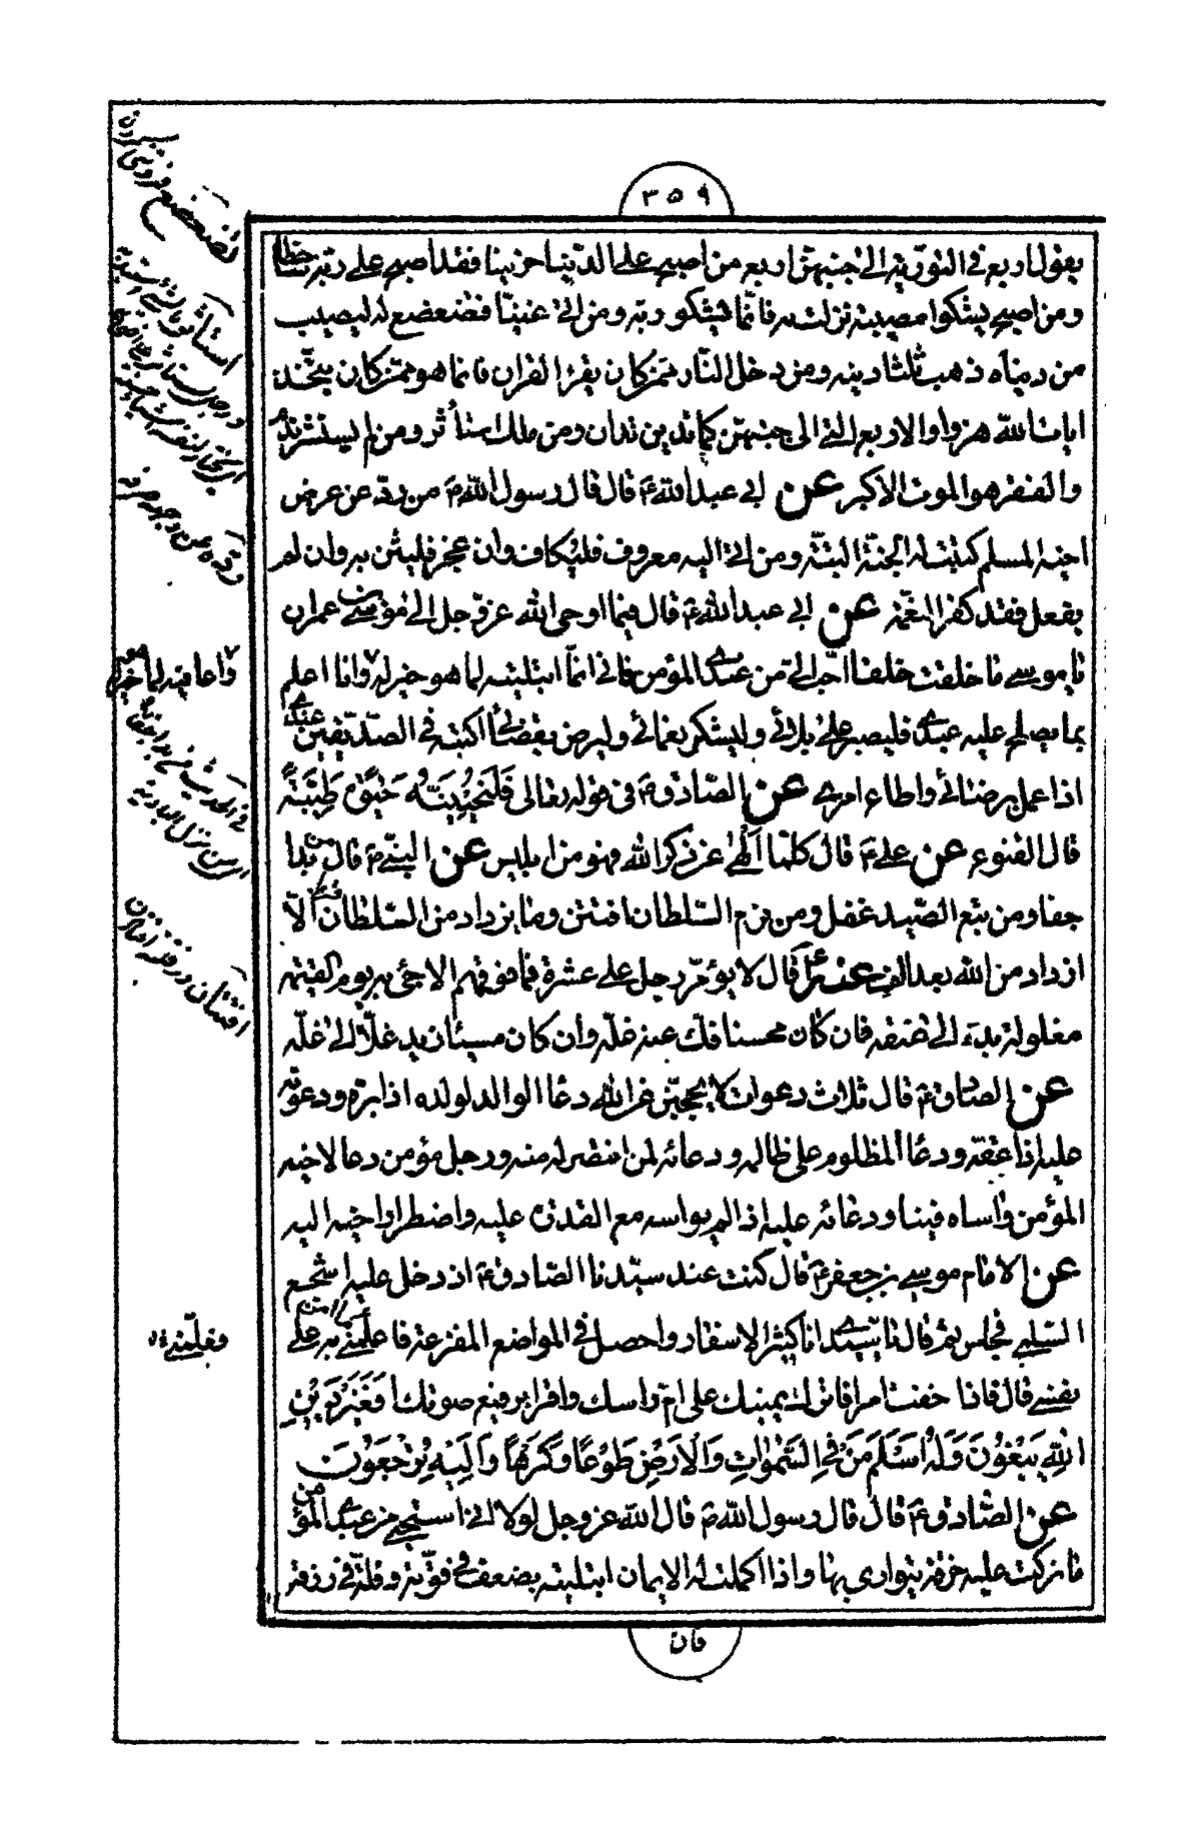 ٣٥٩
يقول اربع في التورية الى جنبهن اربع من اصبح على الدنيا حزينا فقد اصبح على ربه ساخطا
ومن اصبح يشكوا مصيبة نزلت به فانما يشكو ربه ومن اتى غنيا فتضعضع له ليصيب
من دنياه ذهب ثلثا دينه ومن دخل النار ممن كان يقرء القران فانما هو ممن كان يتخذ
ايات الله هزوا والاربع التي الى جنبهن كما تدين تدان ومن ملك استأثر ومن لم يستشر يندم
والفقر هو الموت الاكبر عن ابي عبد الله ع قال قال رسول الله ص من رد عن عرض
اخيه المسلم كتبت له الجنة البتة ومن اتى اليه معروف فليكاف وان عجز فليثن به وان لم
يفعل فقد كفر النعمة عن ابي عبد الله ع قال فيما اوحى الله عز وجل الى موسى بن عمران
يا موسى ما خلقت خلقا احب الى من عبدي المؤمن فاني انما ابتليته لما هو خير له وانا اعلم
بما يصلح عليه عبدي فليصبر على بلائي وليشكر نعمائي وليرض بقضائي اكتبه في الصديقين عندي
اذا عمل برضائي واطاع امري عن الصادق ع في قوله تعالى فَلَنُحْيِيَنَّهُ حَيٰوةً طَيِّبَةً
قال القنوع عن علي ع قال كلما اَلْهى عن ذكر الله فهو من ابليس عن النبي ص قال من بدا
جفا ومن يتبع الصيد غفل ومن لزم السلطان افتتن وما يزداد من السلطان قربا الا
ازداد من الله بعدا عن قال لا يؤمر رجل على عشرة فما فوقهم الا جئ به يوم القيمة
مغلولة يده الى عنقه فان كان محسنا فك عنه غله وان كان مسيئا يزيد غلا الى غله
عن الصادق ع قال ثلاث دعوات لا يحجبن عن الله دعا الوالد لولده اذا بره ودعوته
عليه اذا عقه ودعا المظلوم على ظالمه ودعائه لمن انتصر له منه ورجل مؤمن دعا لاخيه
المؤمن واساه فينا ودعائه عليه اذا لم يواسه مع القدرة عليه واضطرار اخيه اليه
عن الامام موسى بن جعفر ع قال كنت عند سيدنا الصادق ع اذ دخل عليه اشجع
السلمي فجلس ثم قال يا سيدي انا كثير الاسفار واحصل في المواضع المفزعة فاعلمني ما امن به على
نفسي قال فاذا خفت امرا فاترك يمينك على ام راسك واقرا برفيع صوتك اَفَغَيْرَ دينِ
اللهِ يَبْغُونَ وَلَهُ اَسْلَمَ مَنْ فِي السَّمٰوٰاتِ وَالْاَرْضِ طَوْعًا وَكَرْهًا وَاِلَيْهِ يُرْجَعُونَ
عن الصادق ع قال قال رسول الله ص قال الله عز وجل لولا اني استحيي من عبدي المؤمن
ما تركت عليه خرقة يتوارى بها واذا اكملت له الايمان ابتليته بضعف في قوته وقلة في رزقه
تضعضع فروتنی
واعافيه لما هو خير له
في الحديث من بدا جفا
اي من نزل البادية
افتتان در فتنه افتادن
فان